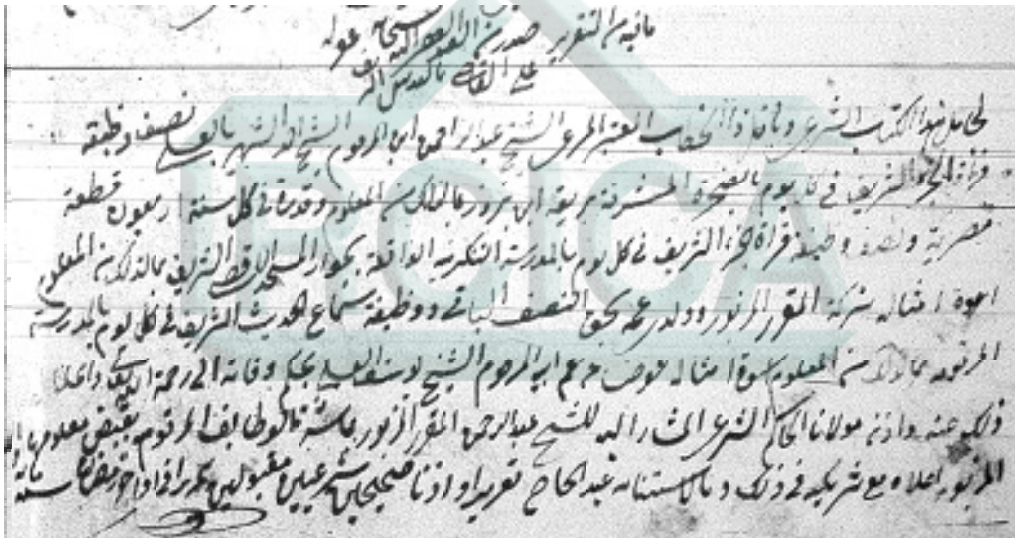 ما فيه من التقرير صدر من العبد الفقير اليه سبحانه عز وله
القاضي بالقدس الشريف
لحامل هذا الكتاب الشرعي وناقل ذا الخطاب المعتبر المرعي الشيخ عبد الرحمن ابن المرحوم الشيخ الشهير بالعسلي نصف وظيفة
قراءة الجزء الشريف في كل يوم بالصخرة المشرفة بما لذلك من المعلوم وقدره في كل سنة اربعون قطعة
مصرية ونصف وظيفة قراءة الجزء الشريف في كل يوم بالمدرسة التنكزية الواقعة بجوار المسجد الاقصى الشريف بما لذلك من المعلوم
اسوة امثاله شركة المقرر المزبور وولد عمه بحق النصف الباقي ووظيفة سماع الحديث الشريف في كل يوم بالمدرسة
المزبورة بما لذلك من المعلوم اسوة امثاله عوضا عن عم ابيه المرحوم الشيخ يوسف العسلي بحكم وفاته الى رحمة الله تعالى
ذلك عنه واذن مولانا الحاكم الشرعي المشار اليه للشيخ عبد الرحمن المقرر المزبور بمباشرة الوظايف المرقومة وبقبض معلومها
المزبور اعلاه مع شريكه في ذلك وبالاستنابه عند الحاجة تقريرا واذنا صحيحين شرعيين مقبولين تحريرا في اواخر رمضان سنة
IRCICA